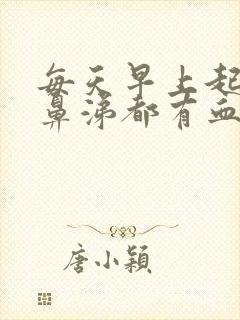 每天早上起
鼻涕都有血
唐小颖